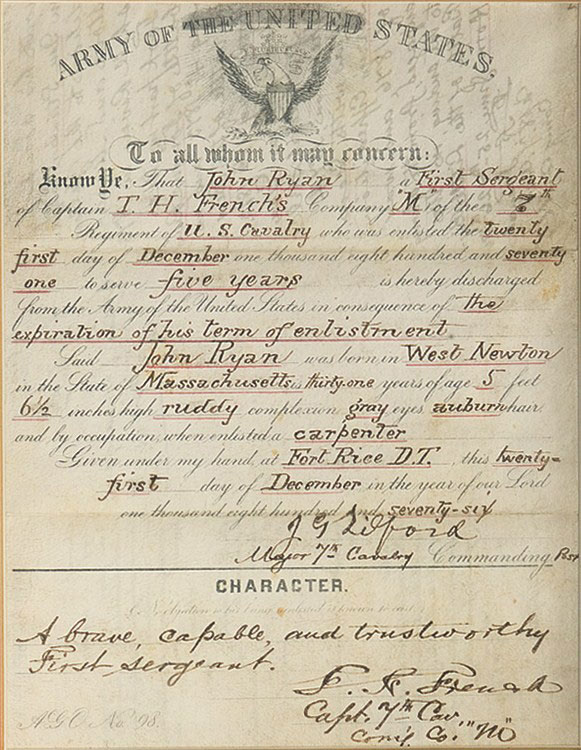 ARMY OF THE UNITED STATES.
To all whom it may concern:
Know Ye, That John Ryan a First Sergeant
of Captain T. H. French's Company "M" of the 7th
Regiment of U. S. Cavalry who was enlisted the twenty
first day of December one thousand eight hundred and seventy
one to serve five years is hereby discharged
from the Army of the United States in consequence of the
expiration of his term of enlistment.
Said John Ryan was born in West Newton
in the State of Massachusetts is thirty-one years of age 5 feet
6½ inches high ruddy complexion gray eyes auburn hair
and by occupation, when enlisted a carpenter
Given under my hand at Fort Rice D.T. this twenty-
first day of December in the year of our Lord
one thousand eight hundred and seventy-six
Major 7th Cavalry Commanding Post
CHARACTER.
A brave, capable, and trustworthy
First sergeant.
French
Capt. 7th Cav.
Co. "M"
A.G.O. No. 98.